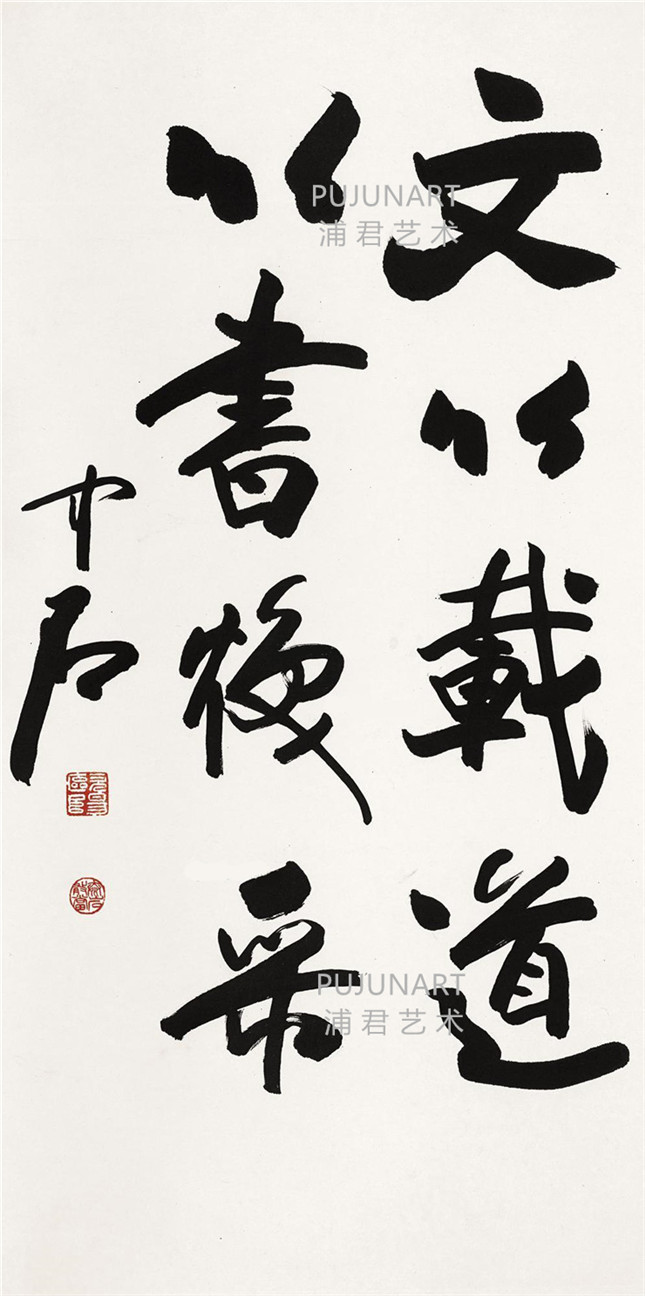 文以載道
以書焕采
中石
PUJUNART
浦君艺术
PUJUNART
浦君艺术